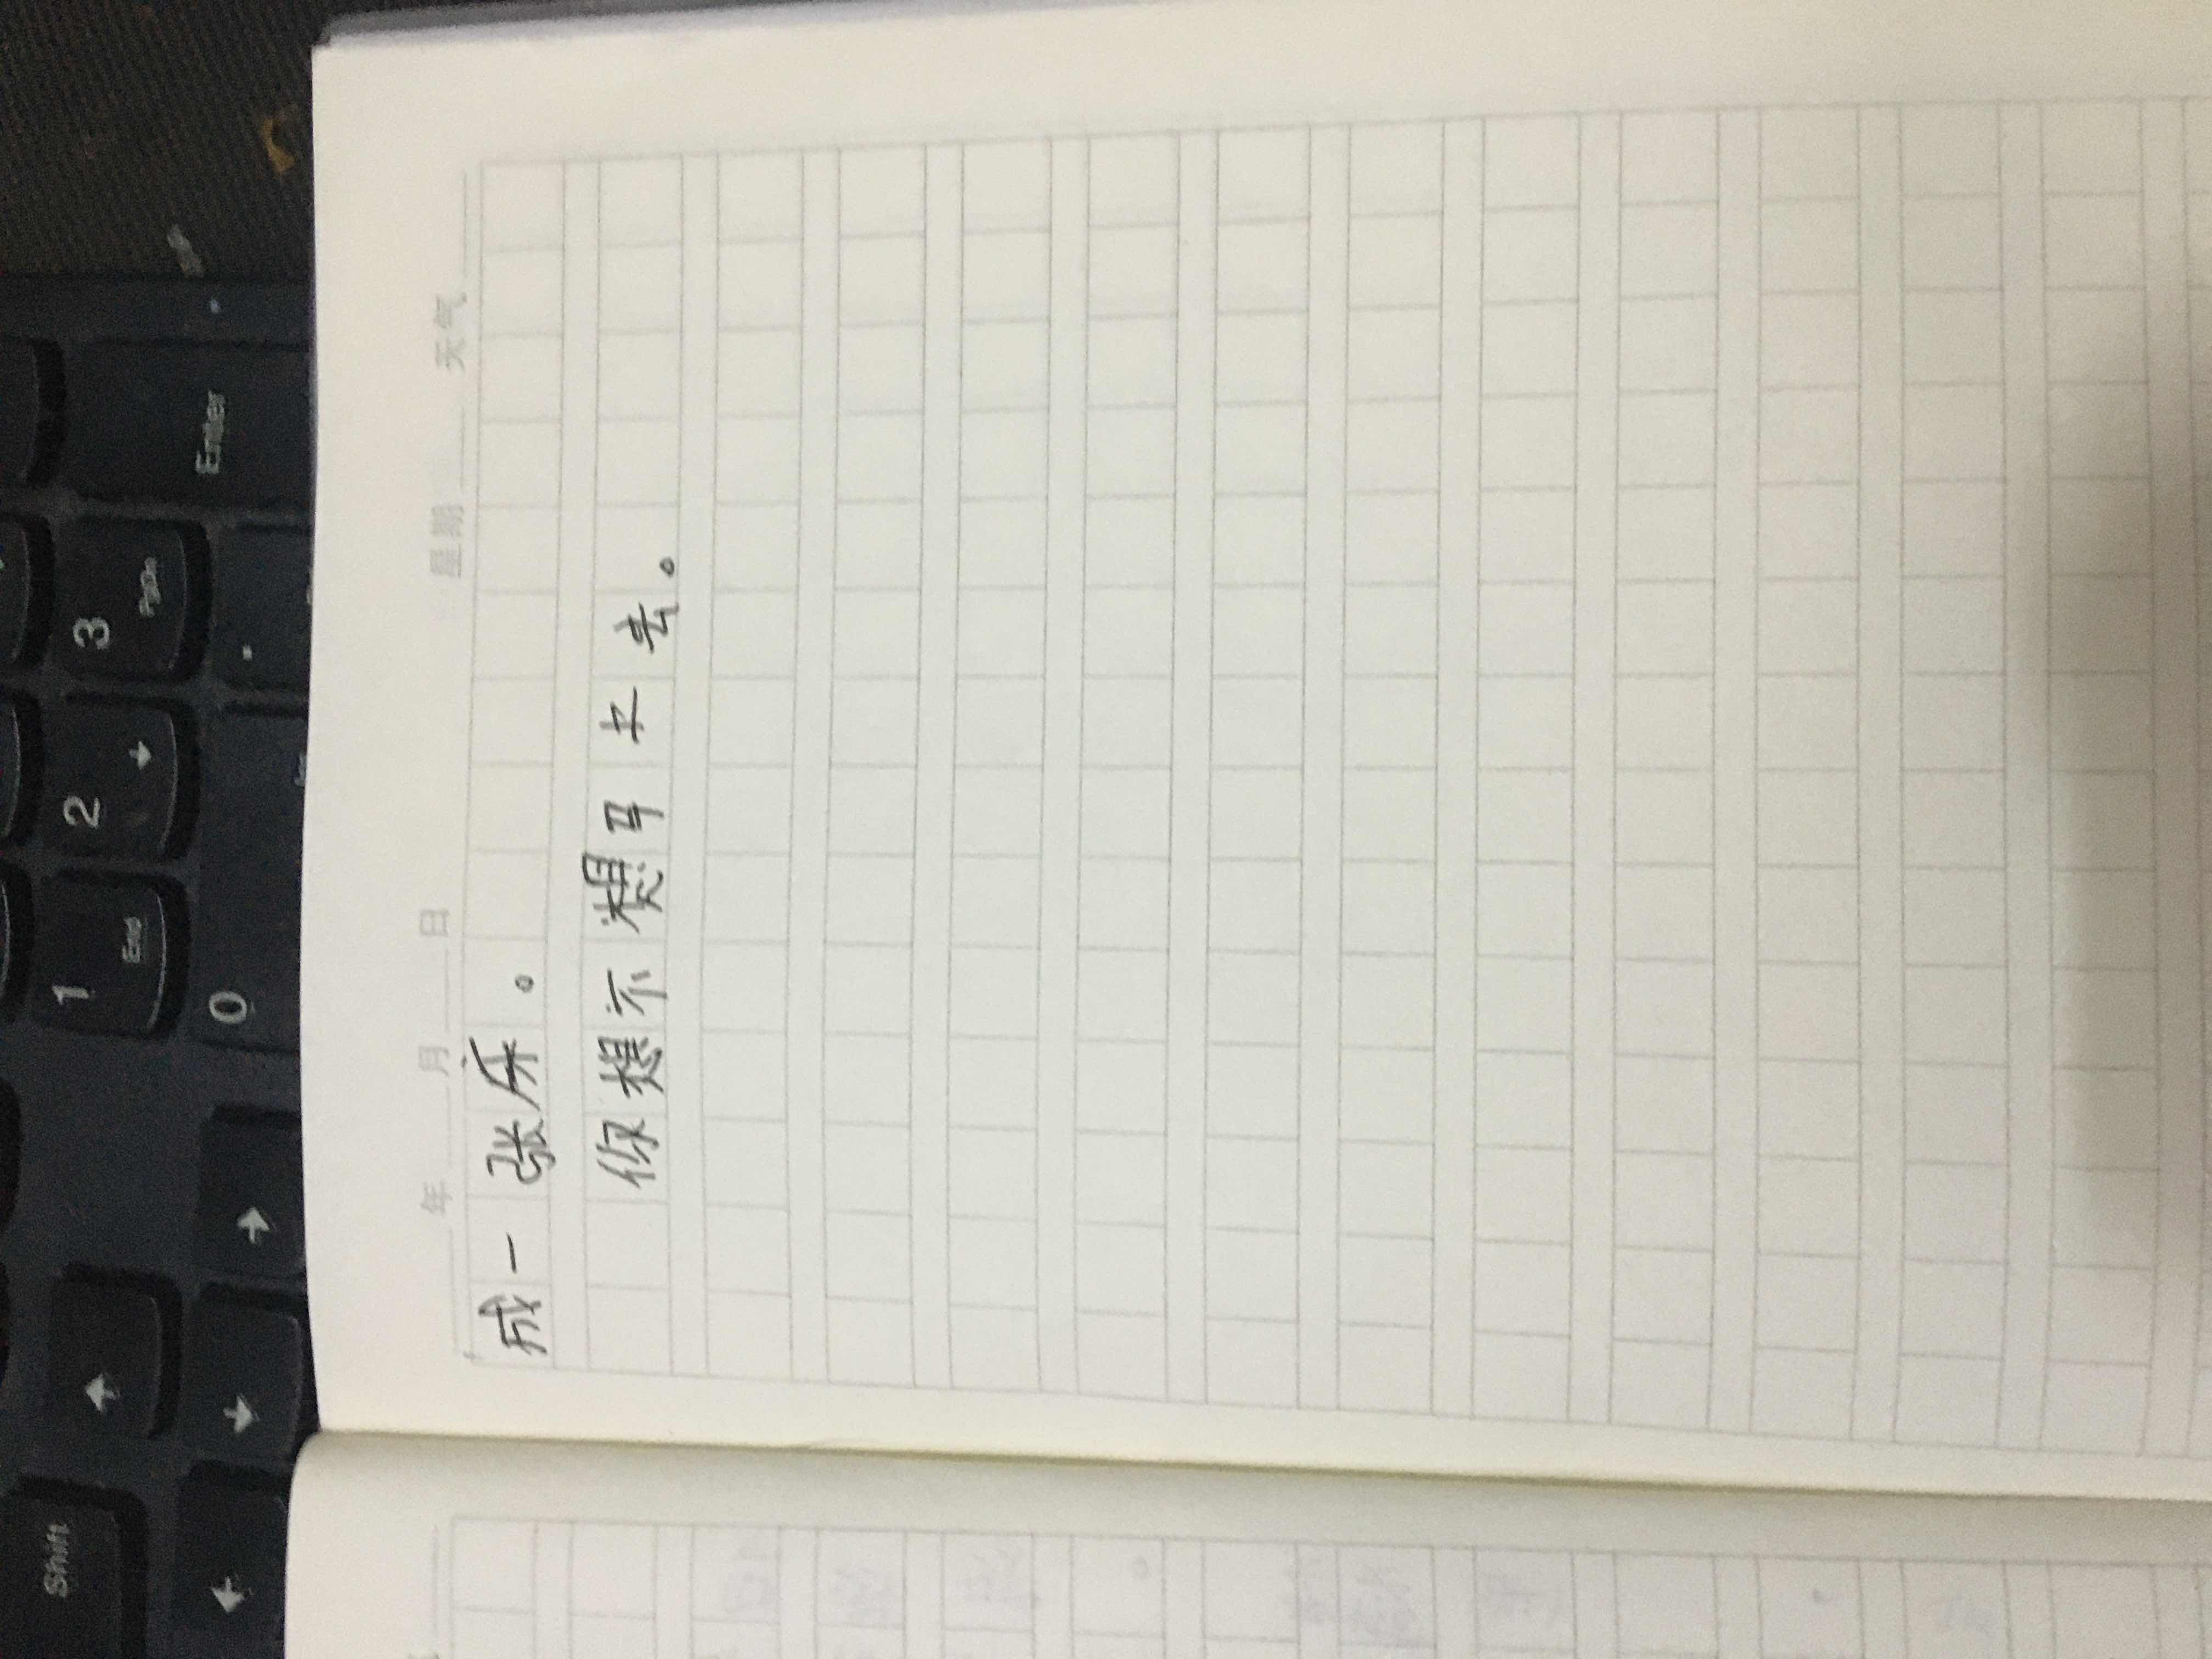 年 月 日 星期 天气
成一张床。
你想不想耳卡去。
Enter
3 PgDn
.
2
1 End
0
Shift